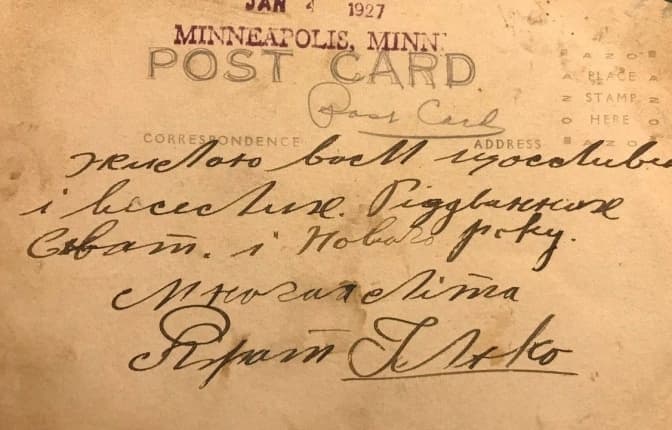 JAN 4 1927
MINNEAPOLIS, MINN.
POST CARD
Post Card
AZO PLACE STAMP HERE AZO
CORRESPONDENCE ADDRESS
жилаю вам щосливи
і веселих. Різдвяних
Сват. і Нового року.
Многая літа
Брат Ілко